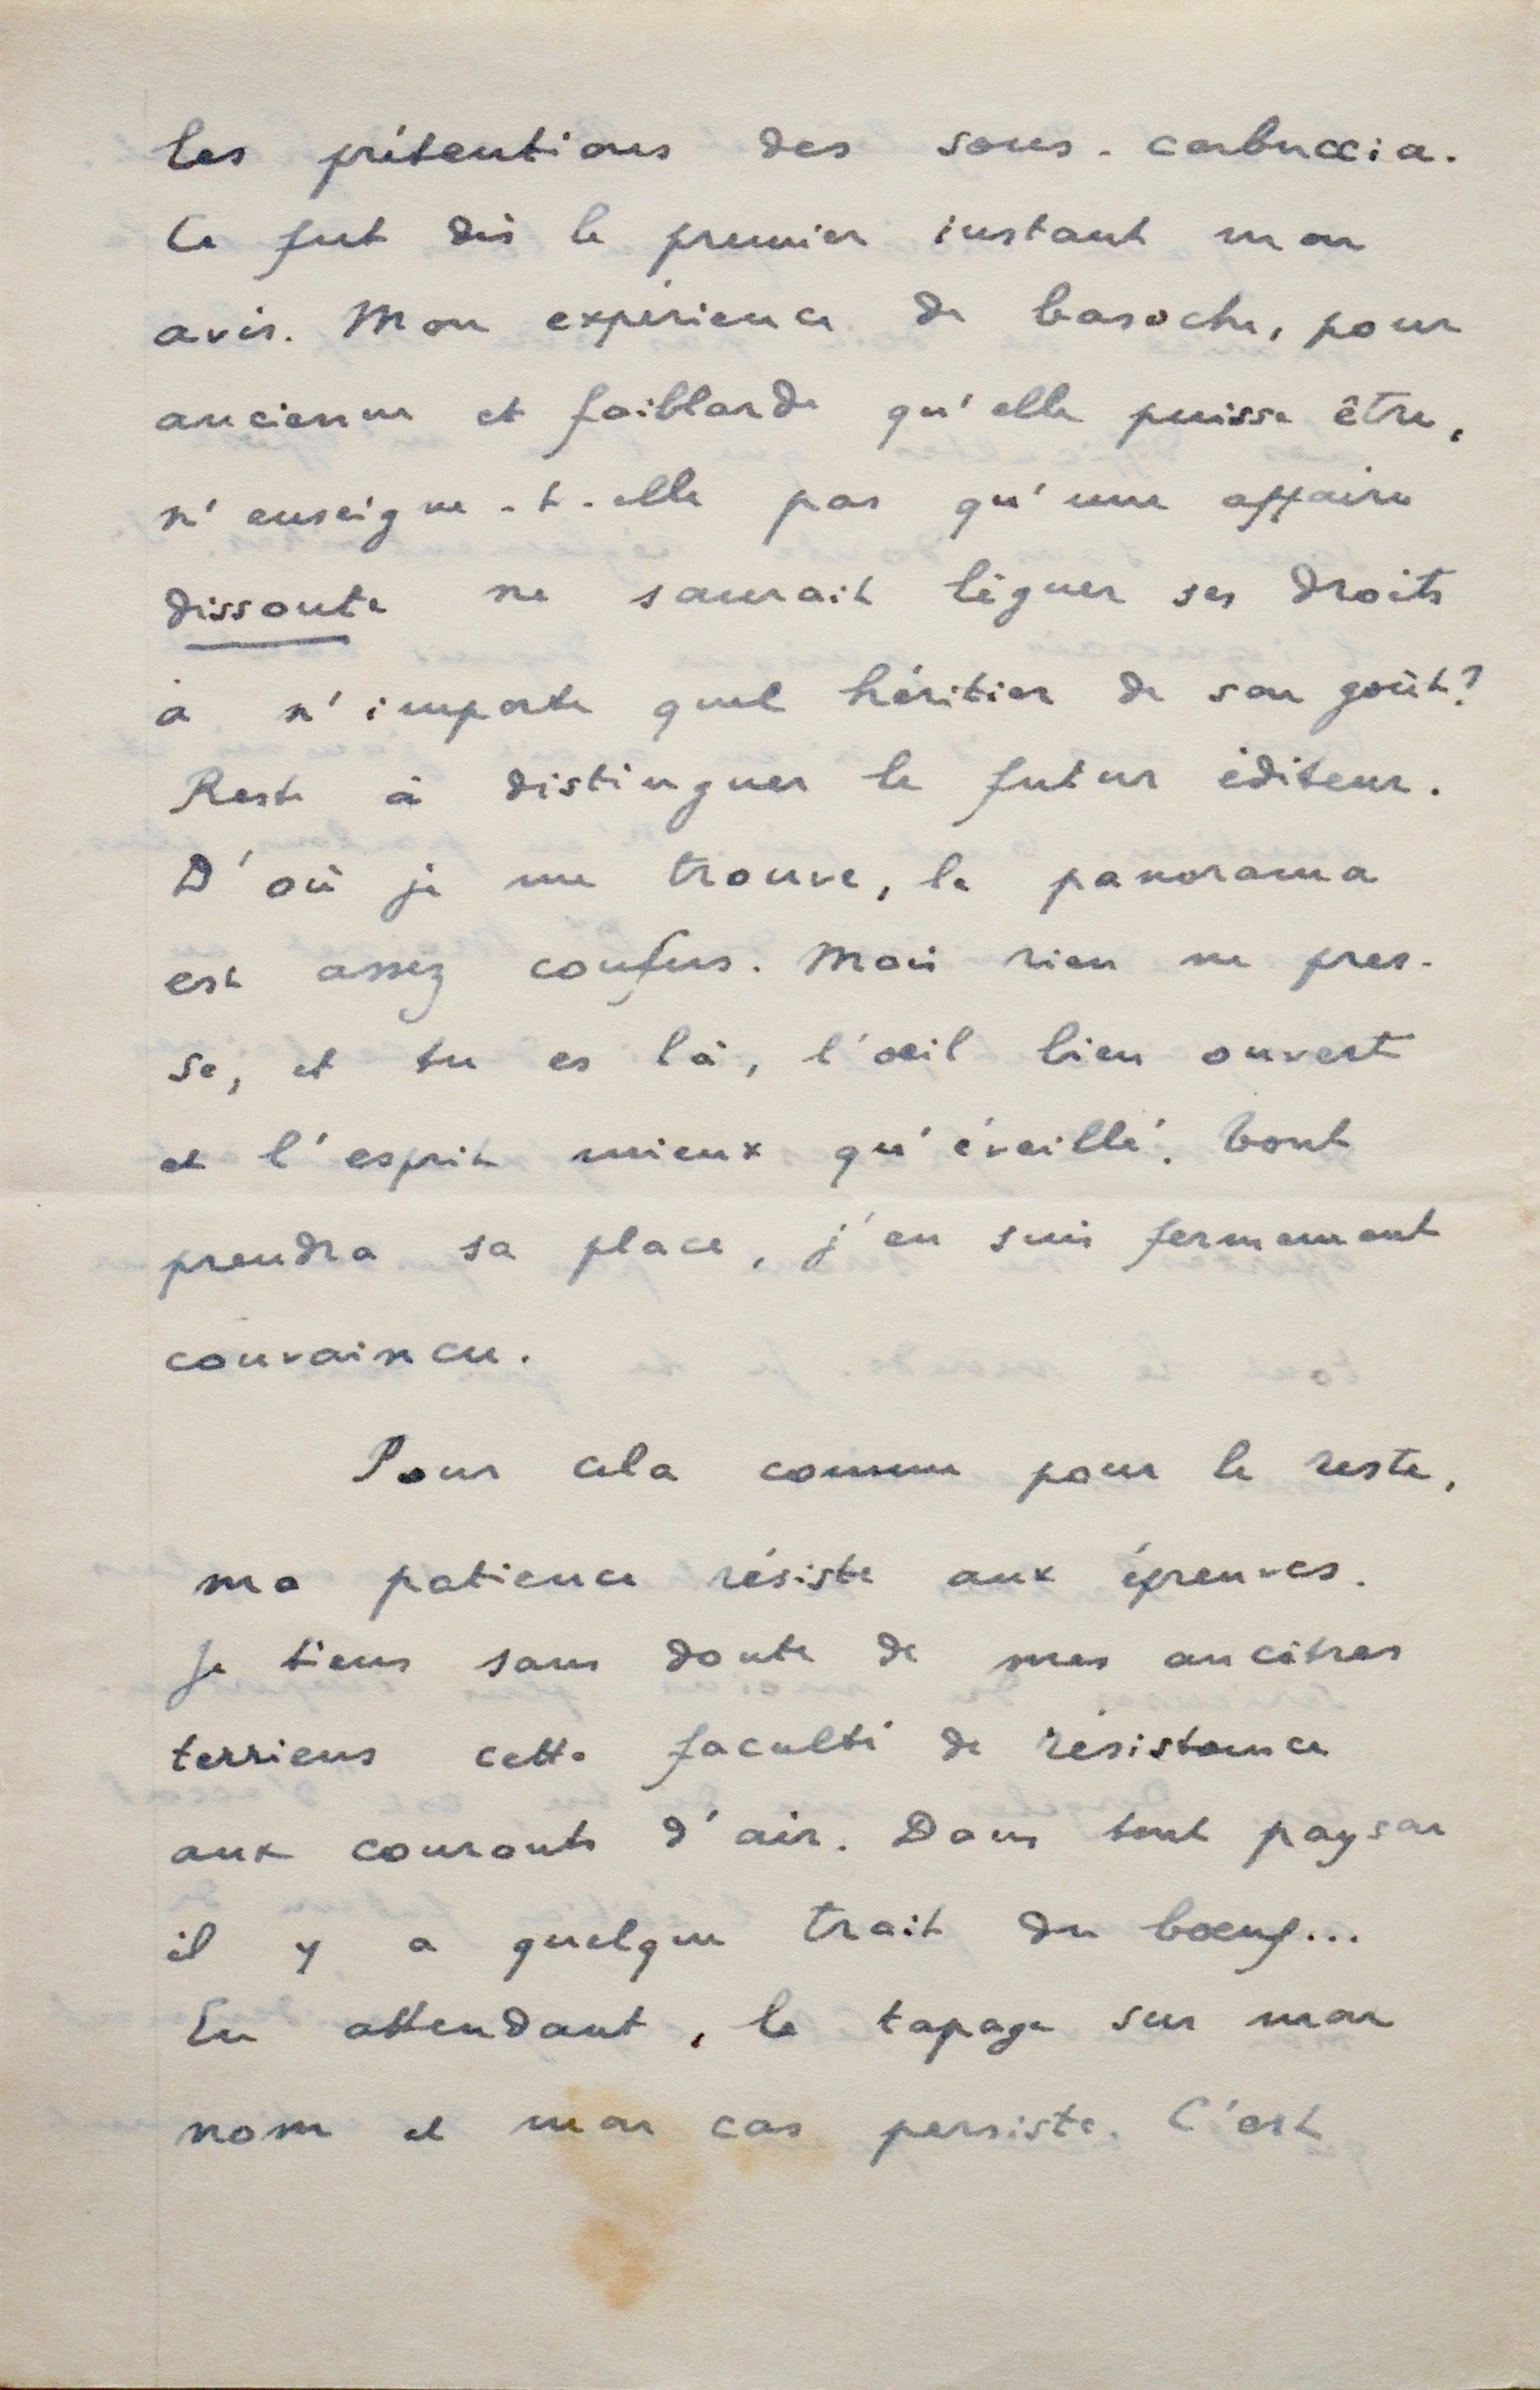 les prétentions des sous-carbuccia.
Ce fut dès le premier instant mon
avis. Mon expérience de basoche, pour
ancienne et faiblarde qu'elle puisse être,
n'enseigne-t-elle pas qu'une affaire
dissoute ne saurait léguer ses droits
à n'importe quel héritier de son goût?
Reste à distinguer le futur éditeur.
D'où je me trouve, le panorama
est assez confus. Mais rien ne pres-
se, et tu es là, l'œil bien ouvert
et l'esprit mieux qu'éveillé. Tout
prendra sa place, j'en suis fermement
convaincu.
Pour cela comme pour le reste,
ma patience résiste aux épreuves.
Je tiens sans doute de mes ancêtres
terriens cette faculté de résistance
aux courants d'air. Dans tout paysan
il y a quelque trait du bœuf...
En attendant, le tapage sur mon
nom et mon cas persiste. C'est